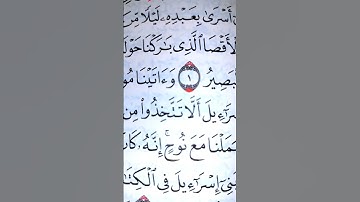 أَسْرَىٰ بِعَبْدِهِۦ لَيْلًا مِّنَ
لْأَقْصَا ٱلَّذِى بَٰرَكْنَا حَوْلَ
لْبَصِيرُ ١ وَءَاتَيْنَا مُو
سْرَٰٓءِيلَ أَلَّا تَتَّخِذُوا۟ مِن
حَمَلْنَا مَعَ نُوحٍ ۚ إِنَّهُۥ كَا
بَنِىٓ إِسْرَٰٓءِيلَ فِى ٱلْكِتَٰ